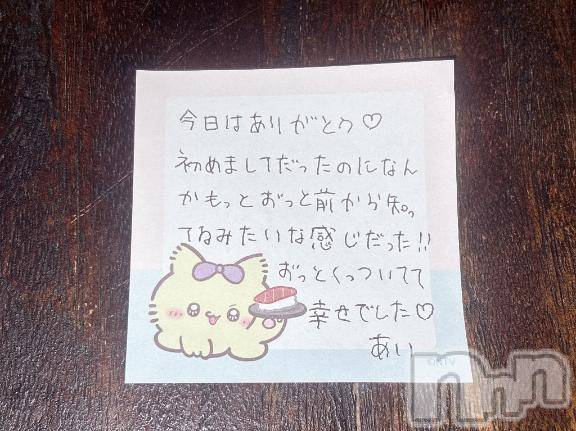 今日はありがとう♡
初めましてだったのになん
かもっとずっと前から知っ
てるみたいな感じだった!!
ずっとくっついてて
幸せでした♡
あい